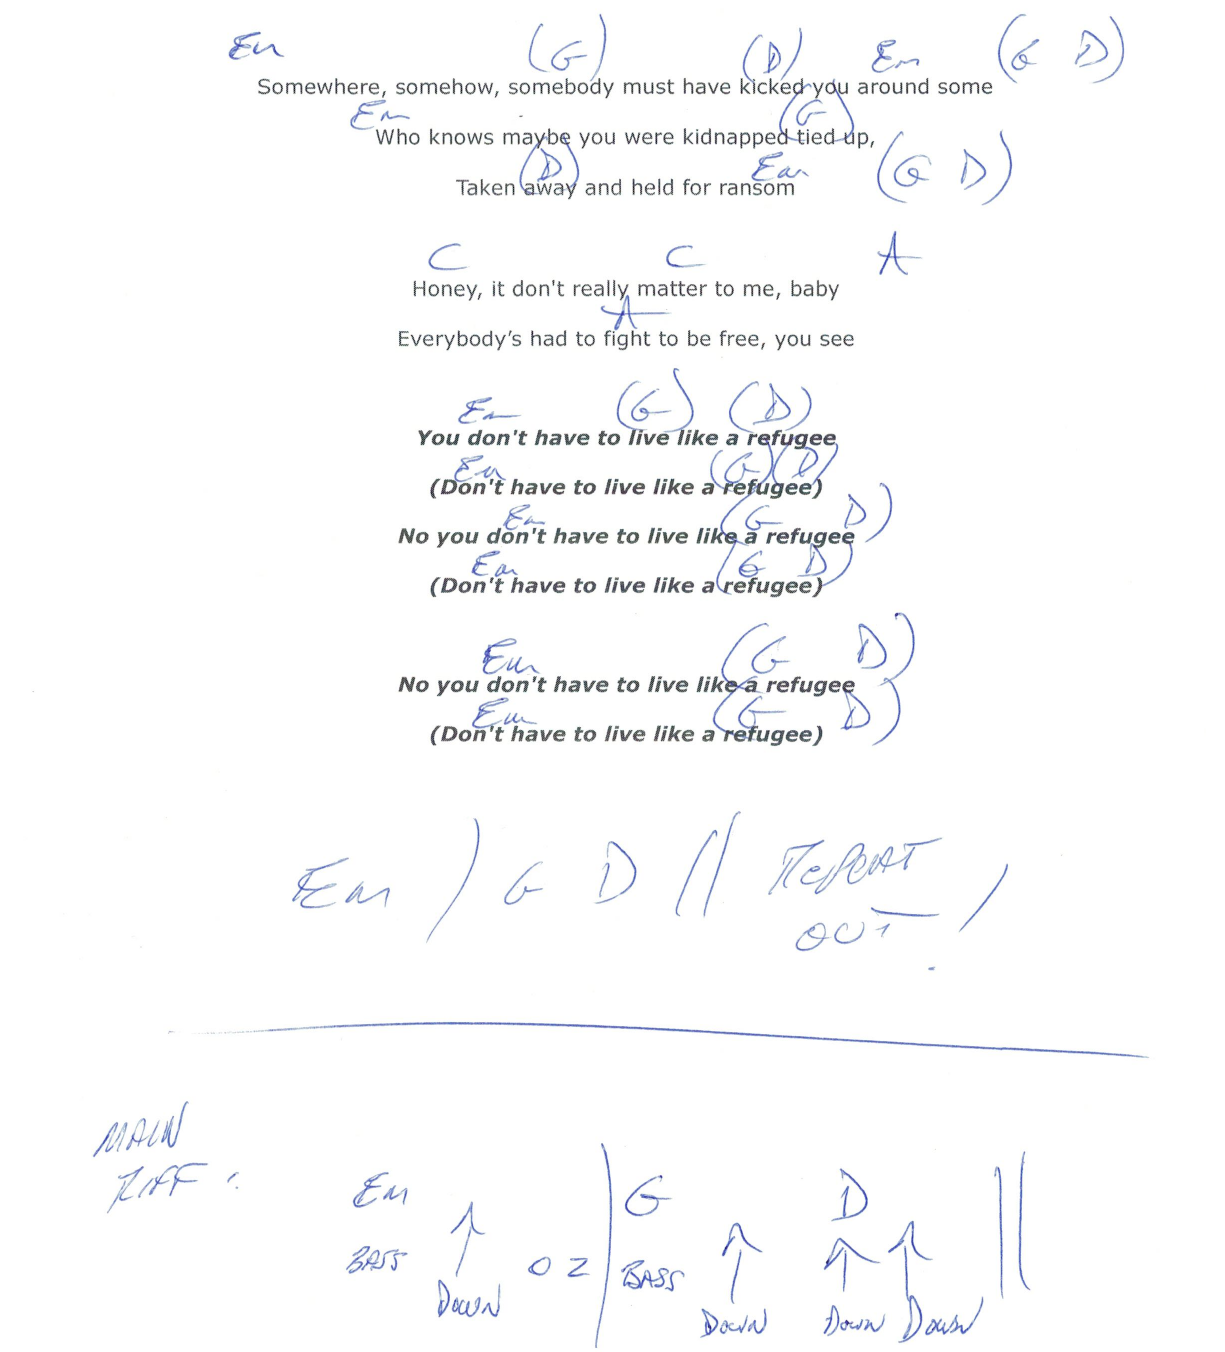 Em (G) (D) Em (G D)
Somewhere, somehow, somebody must have kicked you around some
Em (G)
Who knows maybe you were kidnapped tied up,
(D) Em (G D)
Taken away and held for ransom
C C A
Honey, it don't really matter to me, baby
A
Everybody's had to fight to be free, you see
Em (G) (D)
You don't have to live like a refugee
Em (G)(D)
(Don't have to live like a refugee)
Em (G D)
No you don't have to live like a refugee
Em (G D)
(Don't have to live like a refugee)
Em (G D)
No you don't have to live like a refugee
Em (G D)
(Don't have to live like a refugee)
Em / G D // REPEAT /
OUT
MAIN
RIFF:
Em | G D ||
BASS ↑ BASS ↑ ↑ ↑
DOWN DOWN DOWN DOWN